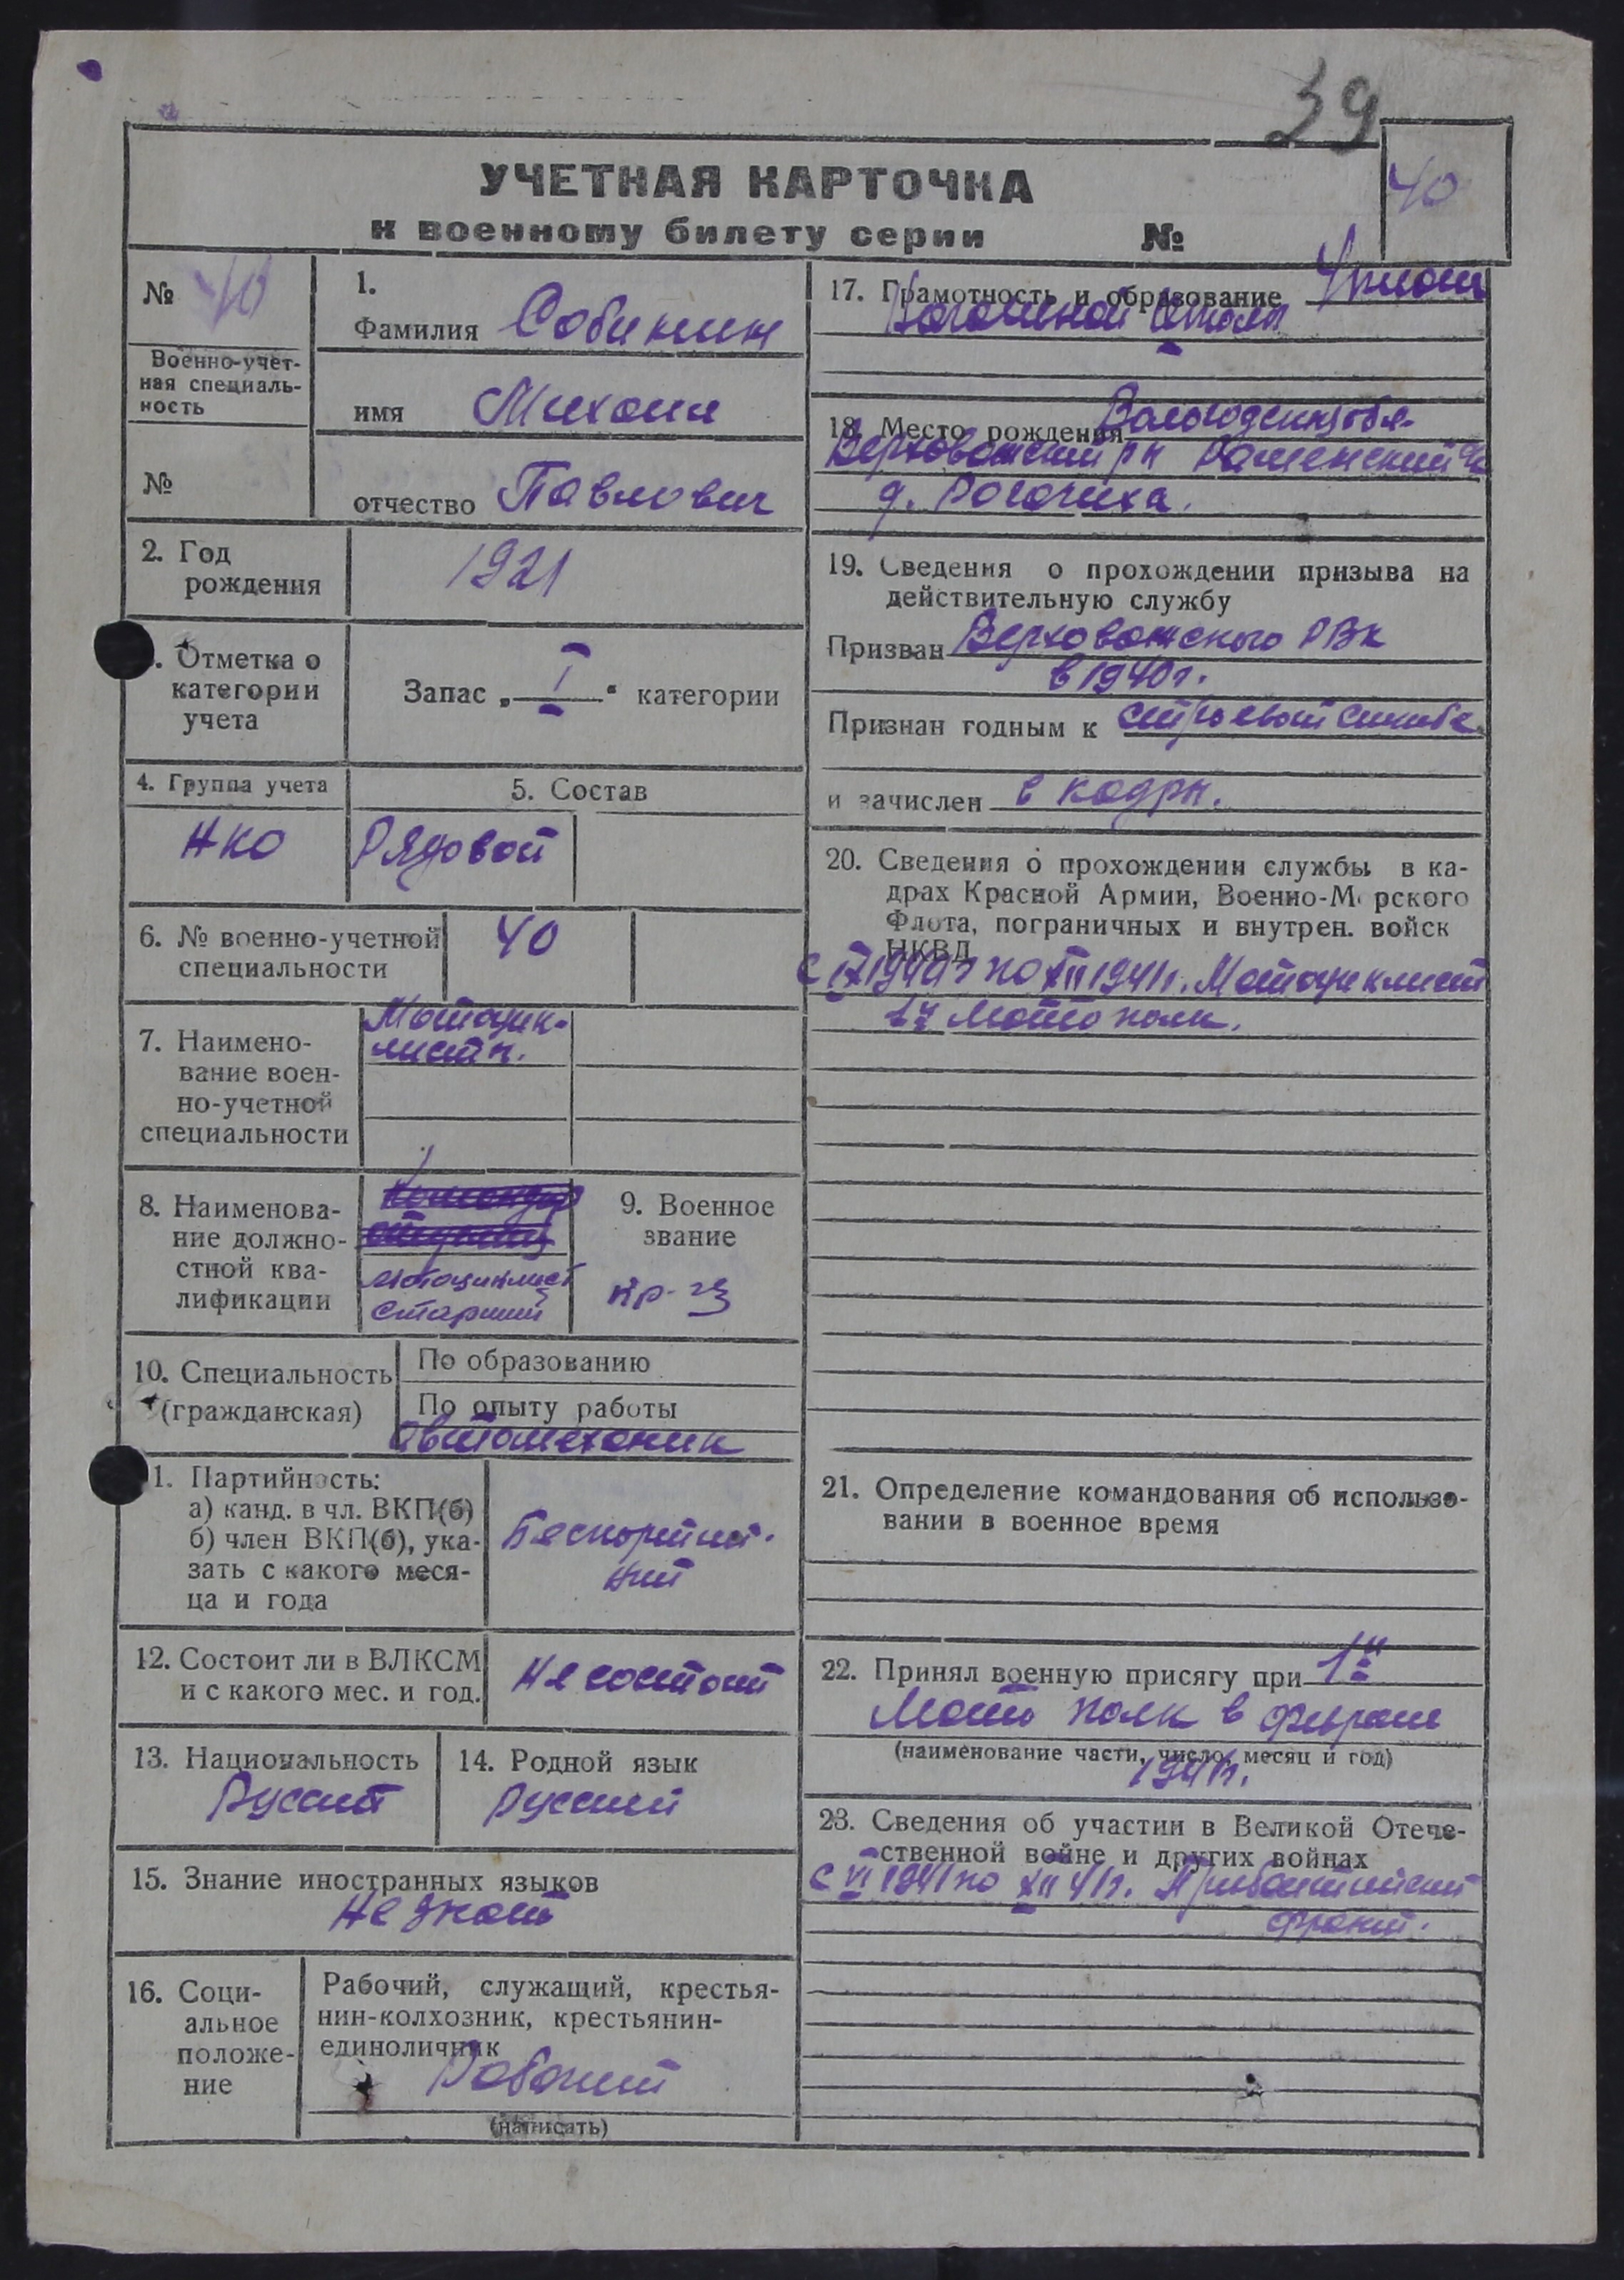 39
40
УЧЕТНАЯ КАРТОЧКА
к военному билету серии №
№ 40
Военно-учет-
ная специаль-
ность
№
1.
Фамилия Собинин
имя Михаил
отчество Павлович
2. Год
рождения
1921
. Отметка о
категории
учета
Запас „ I “ категории
4. Группа учета
НКО
5. Состав
Рядовой
6. № военно-учетной
специальности
40
7. Наимено-
вание воен-
но-учетной
специальности
Мотоцик-
листы.
8. Наименова-
ние должно-
стной ква-
лификации
мотоциклист
старший
9. Военное
звание
кр-ец
10. Специальность
(гражданская)
По образованию
По опыту работы
Автомеханик
1. Партийность:
а) канд. в чл. ВКП(б)
б) член ВКП(б), ука-
зать с какого меся-
ца и года
Беспартий-
ный
12. Состоит ли в ВЛКСМ
и с какого мес. и год.
Не состоит
13. Национальность
Русский
14. Родной язык
Русский
15. Знание иностранных языков
Не знает
16. Соци-
альное
положе-
ние
Рабочий, служащий, крестья-
нин-колхозник, крестьянин-
единоличник
Рабочий
(написать)
17. Грамотность и образование
школы
18. Место рождения Вологодская обл.
Верховажский р-н Раменский с/с
д. Рогачиха.
19. Сведения о прохождении призыва на
действительную службу
Призван Верховажского РВК
в 1940 г.
Признан годным к строевой службе
и зачислен в кадры.
20. Сведения о прохождении службы в ка-
драх Красной Армии, Военно-Морского
Флота, пограничных и внутрен. войск
НКВД
с IX 1940 г по XII 1941 г. Мотоциклист
1й мото полк.
21. Определение командования об использо-
вании в военное время
22. Принял военную присягу при 1й
Мото полк в феврале
(наименование части, число, месяц и год)
1941 г.
23. Сведения об участии в Великой Отече-
ственной войне и других войнах
с VI 1941 по XII 41 г. Прибалтийский
фронт.